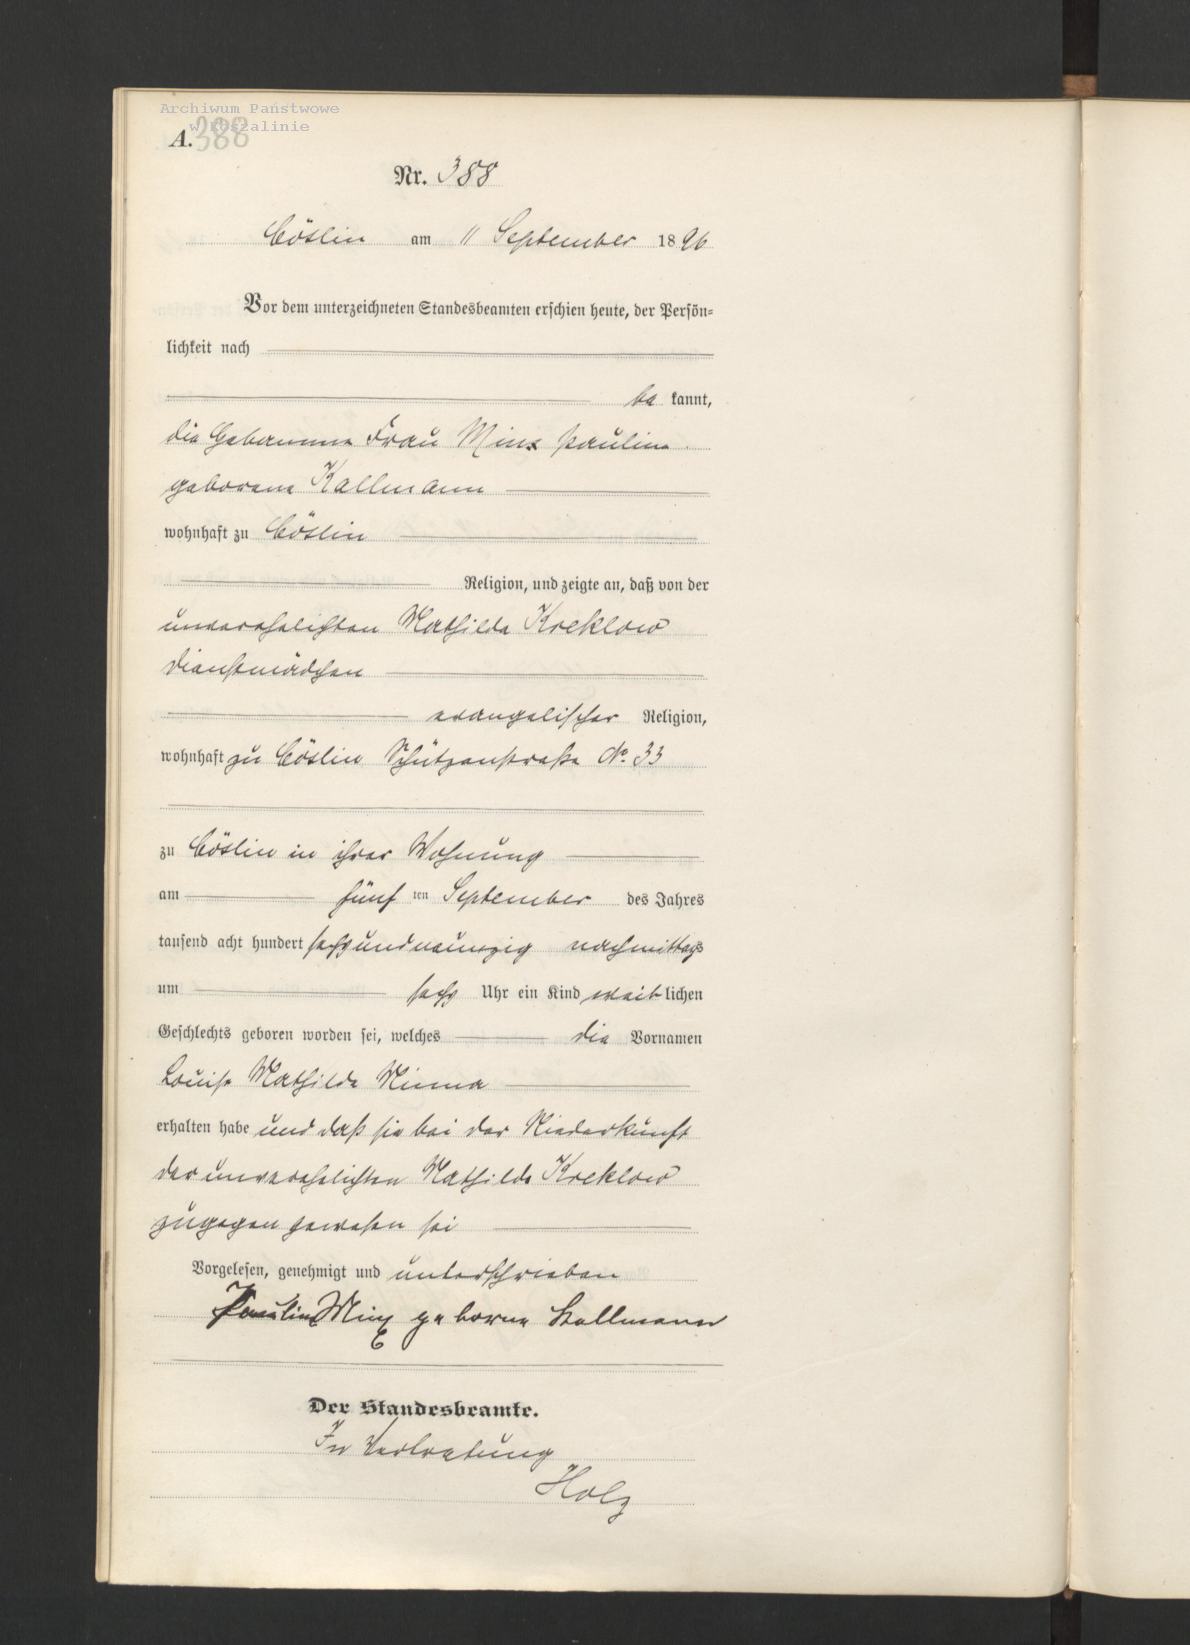 Archiwum Państwowe
w Koszalinie
A. 388
Nr. 388
Cöslin am 11 September 1896
Vor dem unterzeichneten Standesbeamten erschien heute, der Persön=
lichkeit nach
be kannt,
die Hebamme Frau Minx Pauline
geborene Kallmann
wohnhaft zu Cöslin
Religion, und zeigte an, daß von der
unverehelichten Mathilde Kreklow
Dienstmädchen
evangelischer Religion,
wohnhaft zu Cöslin Schützenstraße No. 33
zu Cöslin in ihrer Wohnung
am fünf ten September des Jahres
tausend acht hundert sechsundneunzig nachmittags
um sechs Uhr ein Kind weiblichen
Geschlechts geboren worden sei, welches die Vornamen
Louise Mathilde Minna
erhalten habe und daß sie bei der Niederkunft
der unverehelichten Mathilde Kreklow
zugegen gewesen sei
Vorgelesen, genehmigt und unterschrieben
Pauline Minx geborne Kallmann
Der Standesbeamte.
In Vertretung
Holz